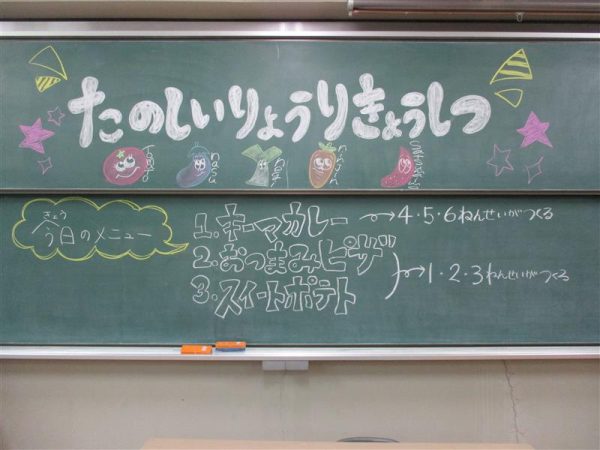 たのしいりょうりきょうしつ
きょう
今日のメニュー
1.キーマカレー → 4・5・6ねんせいがつくる
2.おつまみピザ
3.スイートポテト → 1・2・3ねんせいがつくる